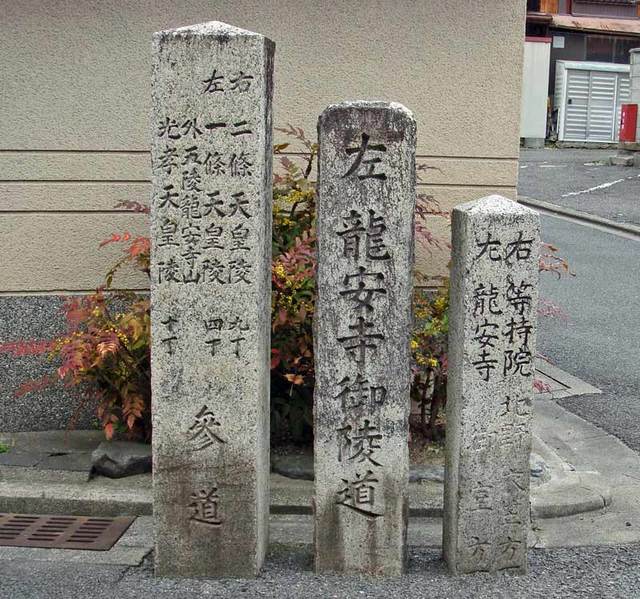 右 二條天皇陵 九丁
左 一條天皇陵 四丁
外五陵龍安寺山
光孝天皇陵 十丁
參道
左 龍安寺御陵道
右 等持院 北野 天
左 龍安寺 御室